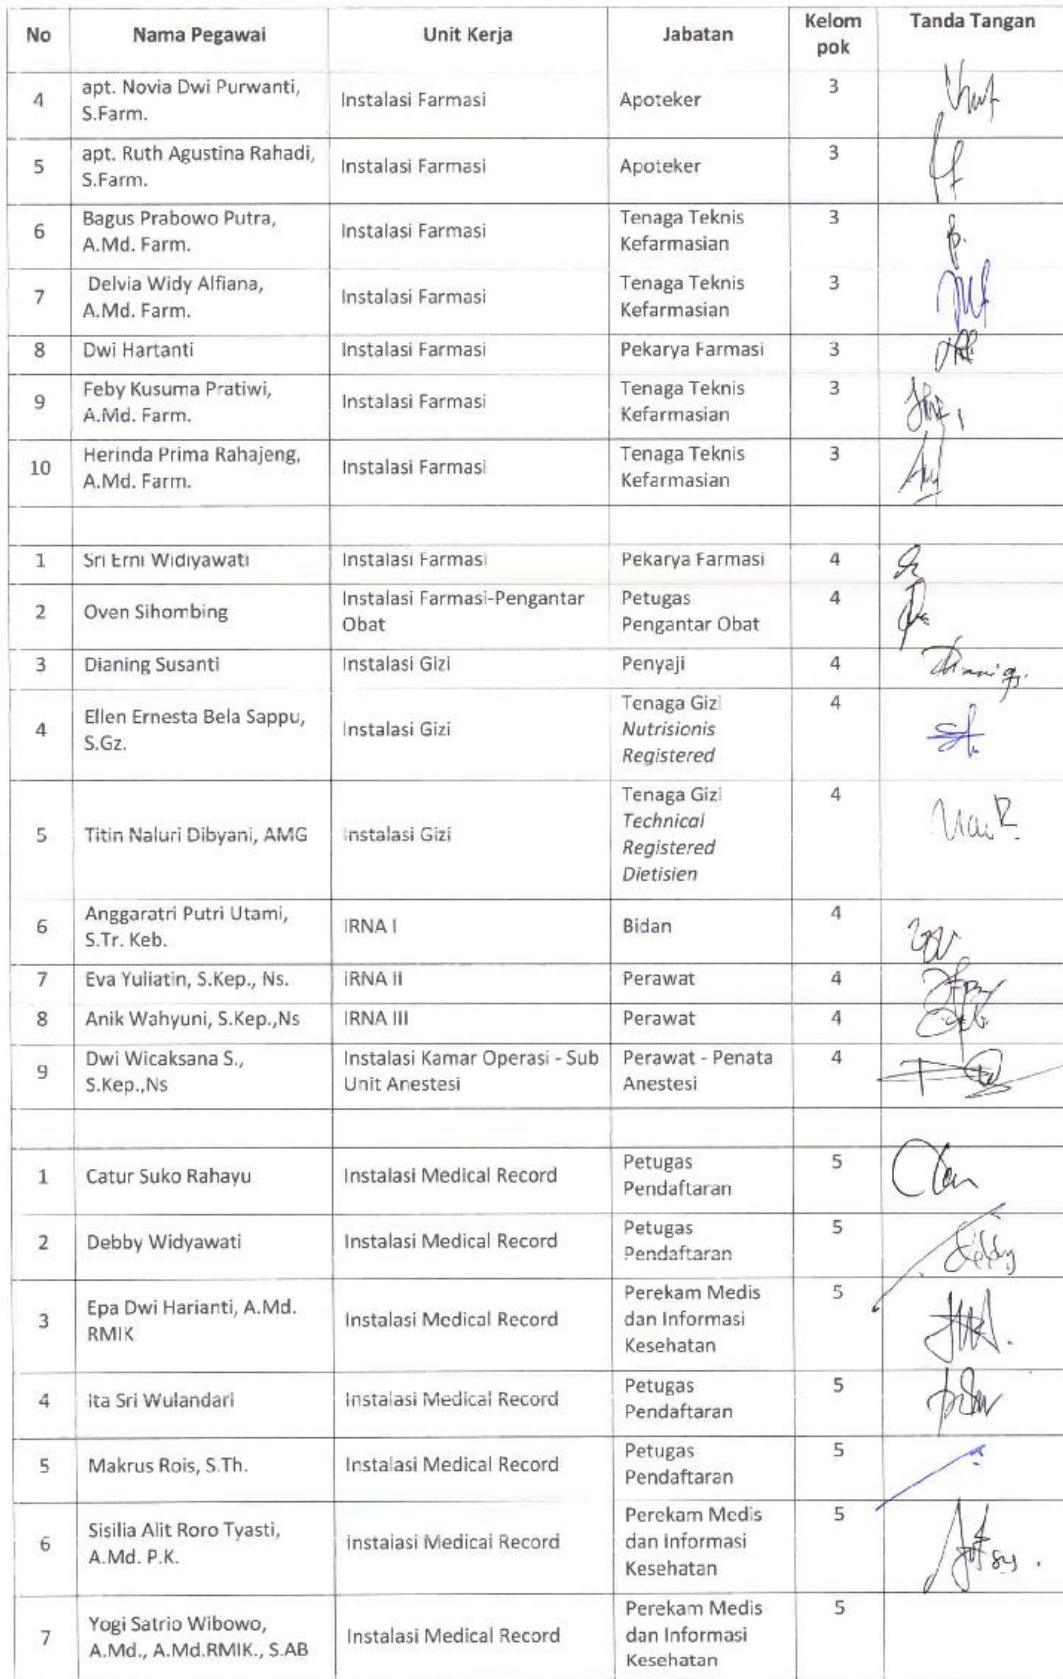 No Nama Pegawai Unit Kerja Jabatan Kelom Tanda Tangan
pok
4 apt. Novia Dwi Purwanti, Instalasi Farmasi Apoteker 3
S.Farm.
5 apt. Ruth Agustina Rahadi, Instalasi Farmasi Apoteker 3
S.Farm.
6 Bagus Prabowo Putra, Instalasi Farmasi Tenaga Teknis 3
A.Md. Farm. Kefarmasian
7 Delvia Widy Alfiana, Instalasi Farmasi Tenaga Teknis 3
A.Md. Farm. Kefarmasian
8 Dwi Hartanti Instalasi Farmasi Pekarya Farmasi 3
9 Feby Kusuma Pratiwi, Instalasi Farmasi Tenaga Teknis 3
A.Md. Farm. Kefarmasian
10 Herinda Prima Rahajeng, Instalasi Farmasi Tenaga Teknis 3
A.Md. Farm. Kefarmasian
1 Sri Erni Widiyawati Instalasi Farmasi Pekarya Farmasi 4
2 Oven Sihombing Instalasi Farmasi-Pengantar Petugas 4
Obat Pengantar Obat
3 Dianing Susanti Instalasi Gizi Penyaji 4
4 Ellen Ernesta Bela Sappu, Instalasi Gizi Tenaga Gizi 4
S.Gz. Nutrisionis
Registered
5 Titin Naluri Dibyani, AMG Instalasi Gizi Tenaga Gizi 4
Technical
Registered
Dietisien
6 Anggaratri Putri Utami, IRNA I Bidan 4
S.Tr. Keb.
7 Eva Yuliatin, S.Kep., Ns. IRNA II Perawat 4
8 Anik Wahyuni, S.Kep.,Ns IRNA III Perawat 4
9 Dwi Wicaksana S., Instalasi Kamar Operasi - Sub Perawat - Penata 4
S.Kep.,Ns Unit Anestesi Anestesi
1 Catur Suko Rahayu Instalasi Medical Record Petugas 5
Pendaftaran
2 Debby Widyawati Instalasi Medical Record Petugas 5
Pendaftaran
3 Epa Dwi Harianti, A.Md. Instalasi Medical Record Perekam Medis 5
RMIK dan Informasi
Kesehatan
4 Ita Sri Wulandari Instalasi Medical Record Petugas 5
Pendaftaran
5 Makrus Rois, S.Th. Instalasi Medical Record Petugas 5
Pendaftaran
6 Sisilia Alit Roro Tyasti, Instalasi Medical Record Perekam Medis 5
A.Md. P.K. dan Informasi
Kesehatan
7 Yogi Satrio Wibowo, Instalasi Medical Record Perekam Medis 5
A.Md., A.Md.RMIK., S.AB dan Informasi
Kesehatan